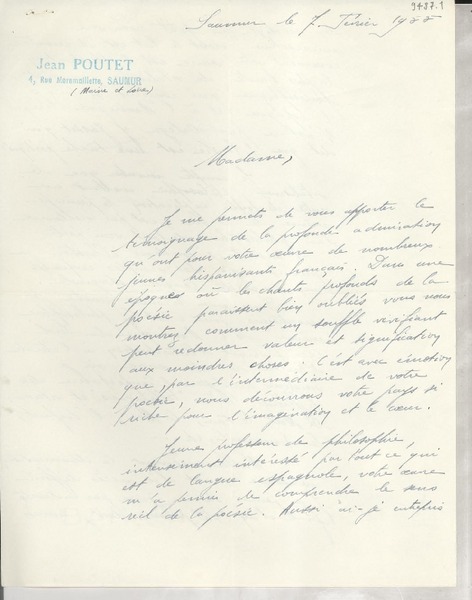 9437.1
Saumur le 7 Février 1955
Jean POUTET
4, Rue Maremaillette, SAUMUR
(Maine et Loire)
Madame,
Je me permets de vous apporter le
témoignage de la profonde admiration
qu'ont pour votre œuvre de nombreux
jeunes hispanisants français. Dans une
époque où les chants profonds de la
poésie paraissent bien oubliés vous nous
montrez comment un souffle vivifiant
peut redonner valeur et signification
aux moindres choses. C'est avec émotion
que, par l'intermédiaire de votre
poésie, nous découvrons votre pays si
riche pour l'imagination et le cœur.
Jeune professeur de philosophie,
intensément intéressé par tout ce qui
est de langue espagnole, votre œuvre
m'a permis de comprendre le sens
réel de la poésie. Aussi ai-je entrepris